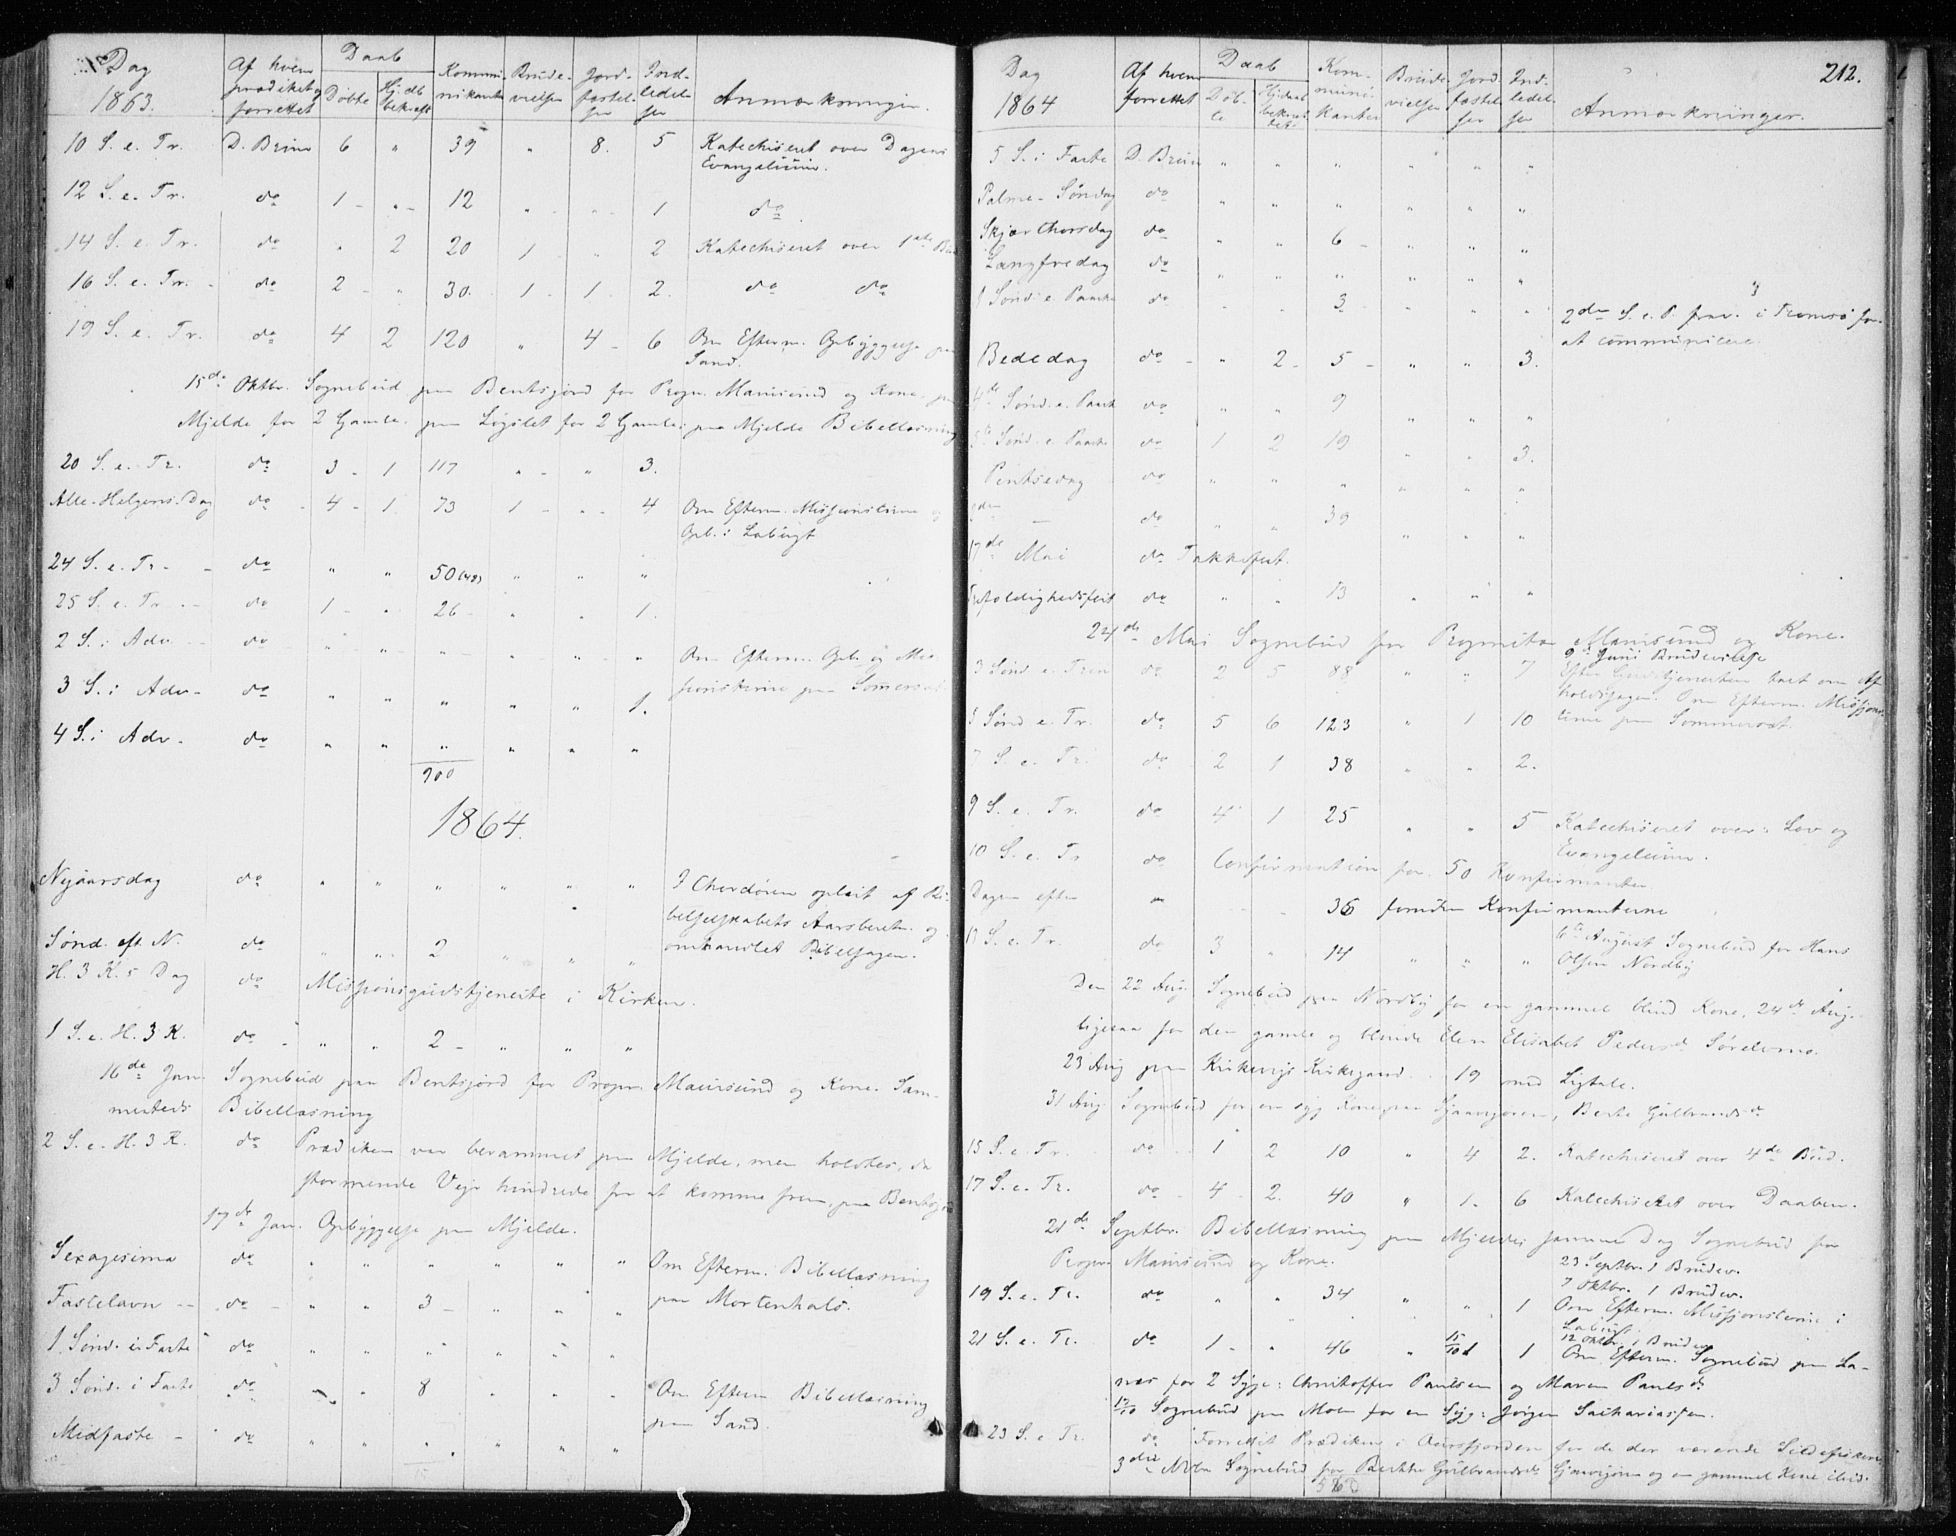 Dag 1863. | Af hvem prædiket og forrettet | Daab Døbte | Hjdb bekræft | Kommunikanter | Brudevielser | Jordfæstelser | Indledelser | Anmærkninger.
10 S. e. Tr. D. Bruun 6 " 39 " 8. 5 Katechiseret over Dagens
Evangelium.
12 S. e. Tr. do 1 - " - 12 " " 1 do
14 S. e. Tr. do " 2 20 1 " 2 Katechiseret over 1ste Bud
16 S. e. Tr. do 2 - " 30. 1 - 1. 2. do do
19 S. e. Tr. do 4 2 120 " 4 - 6 Om Efterm. Opbyggelse paa
Sand.
15de Oktbr. Sognebud paa Bentsjord for Propr. Maursund og Kone. paa
Mjelde for 2 Gamle. paa Løgslet for 2 Gamle. paa Mjelde Bibellæsning
20 S. e. Tr. do 3 - 1 117 " - " 3.
Alle-Helgens-Dag do - 4 - 1. 73 1 - " - 4 Om Efterm. Missionstime og
Opb. i Labugt
24 S. e. Tr. - do " " 50 (48) " " "
25 S. e. Tr. - do 1 - " 26 - " " 1.
2 S. i Adv - do " " " " " " Om Efterm. Opb. og Mis-
sionstime paa Sommersæt
3 S. i Adv - do " " " " " 1.
4 S. i Adv - do " " " " " "
900
1864.
Nyaarsdag do " " " " " " I Chordøren oplæst af Bi-
belselskabets Aarsberetn. og
omhandlet Bibelsagen.
Sønd. eft. N. do " " 2 " " "
H. 3 K.s Dag do Missionsgudstjeneste i Kirken.
1 S. e. H. 3 K. do - " " 2 - " " "
16de Jan. Sognebud paa Bentsjord for Propr. Maursund og Kone. Sam-
mesteds Bibellæsning
2 S. e. H. 3 K. do Prædiken var berammet paa Mjelde, men holdtes, da
stormende Vejr hindrede for at komme frem, paa Bentsjord
17de Jan. Opbyggelse paa Mjelde.
Sexagesima do " " " " " " Om Efterm. Bibellæsning
paa Mortenhals.
Fastelavn - do - " " 3 - " " "
1 Sønd. i Faste do " " " " " "
3 Sønd. i Faste do " " 8 " " " Om Efterm Bibellæsning
paa Sand.
Midfaste - do " " " " " "
212.
Dag 1864 | Af hvem forrettet | Daab Døbte | Hjdaab bekræftet | Kommunikanter | Brudevielser | Jordfæstelser | Indledelser | Anmærkninger.
5 S. i Faste D. Bruun " " " " " "
Palme-Søndag do " " " " " "
Skjærthorsdag do " " 6 - " " "
Langfredag do " " " " " "
1 Sønd. e. Paaske do " " 3 " " "
2den S. e. P. frav. i Tromsø for
at communicere.
Bededag do - " 2 - 5 - " " 3.
4de Sønd. e. Paask do " " 9 " " "
5te Sønd. e. Paaske do 1 2 19 " " 3.
Pintsedag do " " " " " "
2den — do " " 39 " " "
17de Mai do Takkefest.
Trefoldighedsfest do " " 13 " " "
24de Mai Sognebud for Proprietær Maursund og Kone.
9de Juni Brudevielse
3 Sønd e. Trin do 2 5 88 " " 7 Efter Gudstjenesten talt om Af-
holdssagen. Om Efterm. Missions-
time paa Sommersæt.
5 Sønd e. Tr. do 5 6 123 " 1 10
7 S. e. Tr. do 2 1 38 " " 2.
9 S. e. Tr. do 4 1 25 " " 5 Katechiseret over: Lov og
Evangelium.
10 S. e. Tr do Confirmation for 50 Konfirmanter.
Dagen efter 36 foruden Konfirmanterne
13 S. e. Tr. do 3 " 14 " " " 6te August Sognebud for Hans
Olsen Nordby
Den 22 Aug. Sognebud paa Nordby for en gammel blind Kone, 24de Aug.
ligesaa for den gamle og blinde Elen Elisabet Pedersdr Sørelvmo.
23 Aug paa Kirkevigs Kirkegaard. 19 med Ligtale.
31 Aug. Sognebud for en syg Kone paa Gjøvigøren, Berte Gulbrandsdr
15 S. e. Tr. do 1 2 10 " 4 2. Katechiseret over 4de Bud.
17 S. e. Tr. do - 4 - 2. 40 " 1. 6 Katechiseret over Daaben.
21de Septbr. Bibellæsning paa Mjelde; samme Dag Sognebud for
Propr. Maursund og Kone.
23 Septbr. 1 Brudev.
7 Oktbr. 1 Brudev.
19 S. e. Tr. do " " 34 " " 1 Om Efterm. Missionstime i
Labugt.
12 Oktbr. 1 Brudev.
21 S. e. Tr. do 1 - " 46 " 15/10 1 1 Om Efterm. Sognebud paa La-
næs for 2 Syge: Christoffer Paulsen og Maren Paulsdr
17/10 Sognebud paa Moen for en Syg: Jørgen Sachariassen.
23 S. e Tr. do Forrettet Prædiken i Aursfjorden for de der værende Sildefiskere
3die Novbr Sognebud for Berthe Gulbrandsdr Gjøvigøren og en gammel Kone ibid.
580